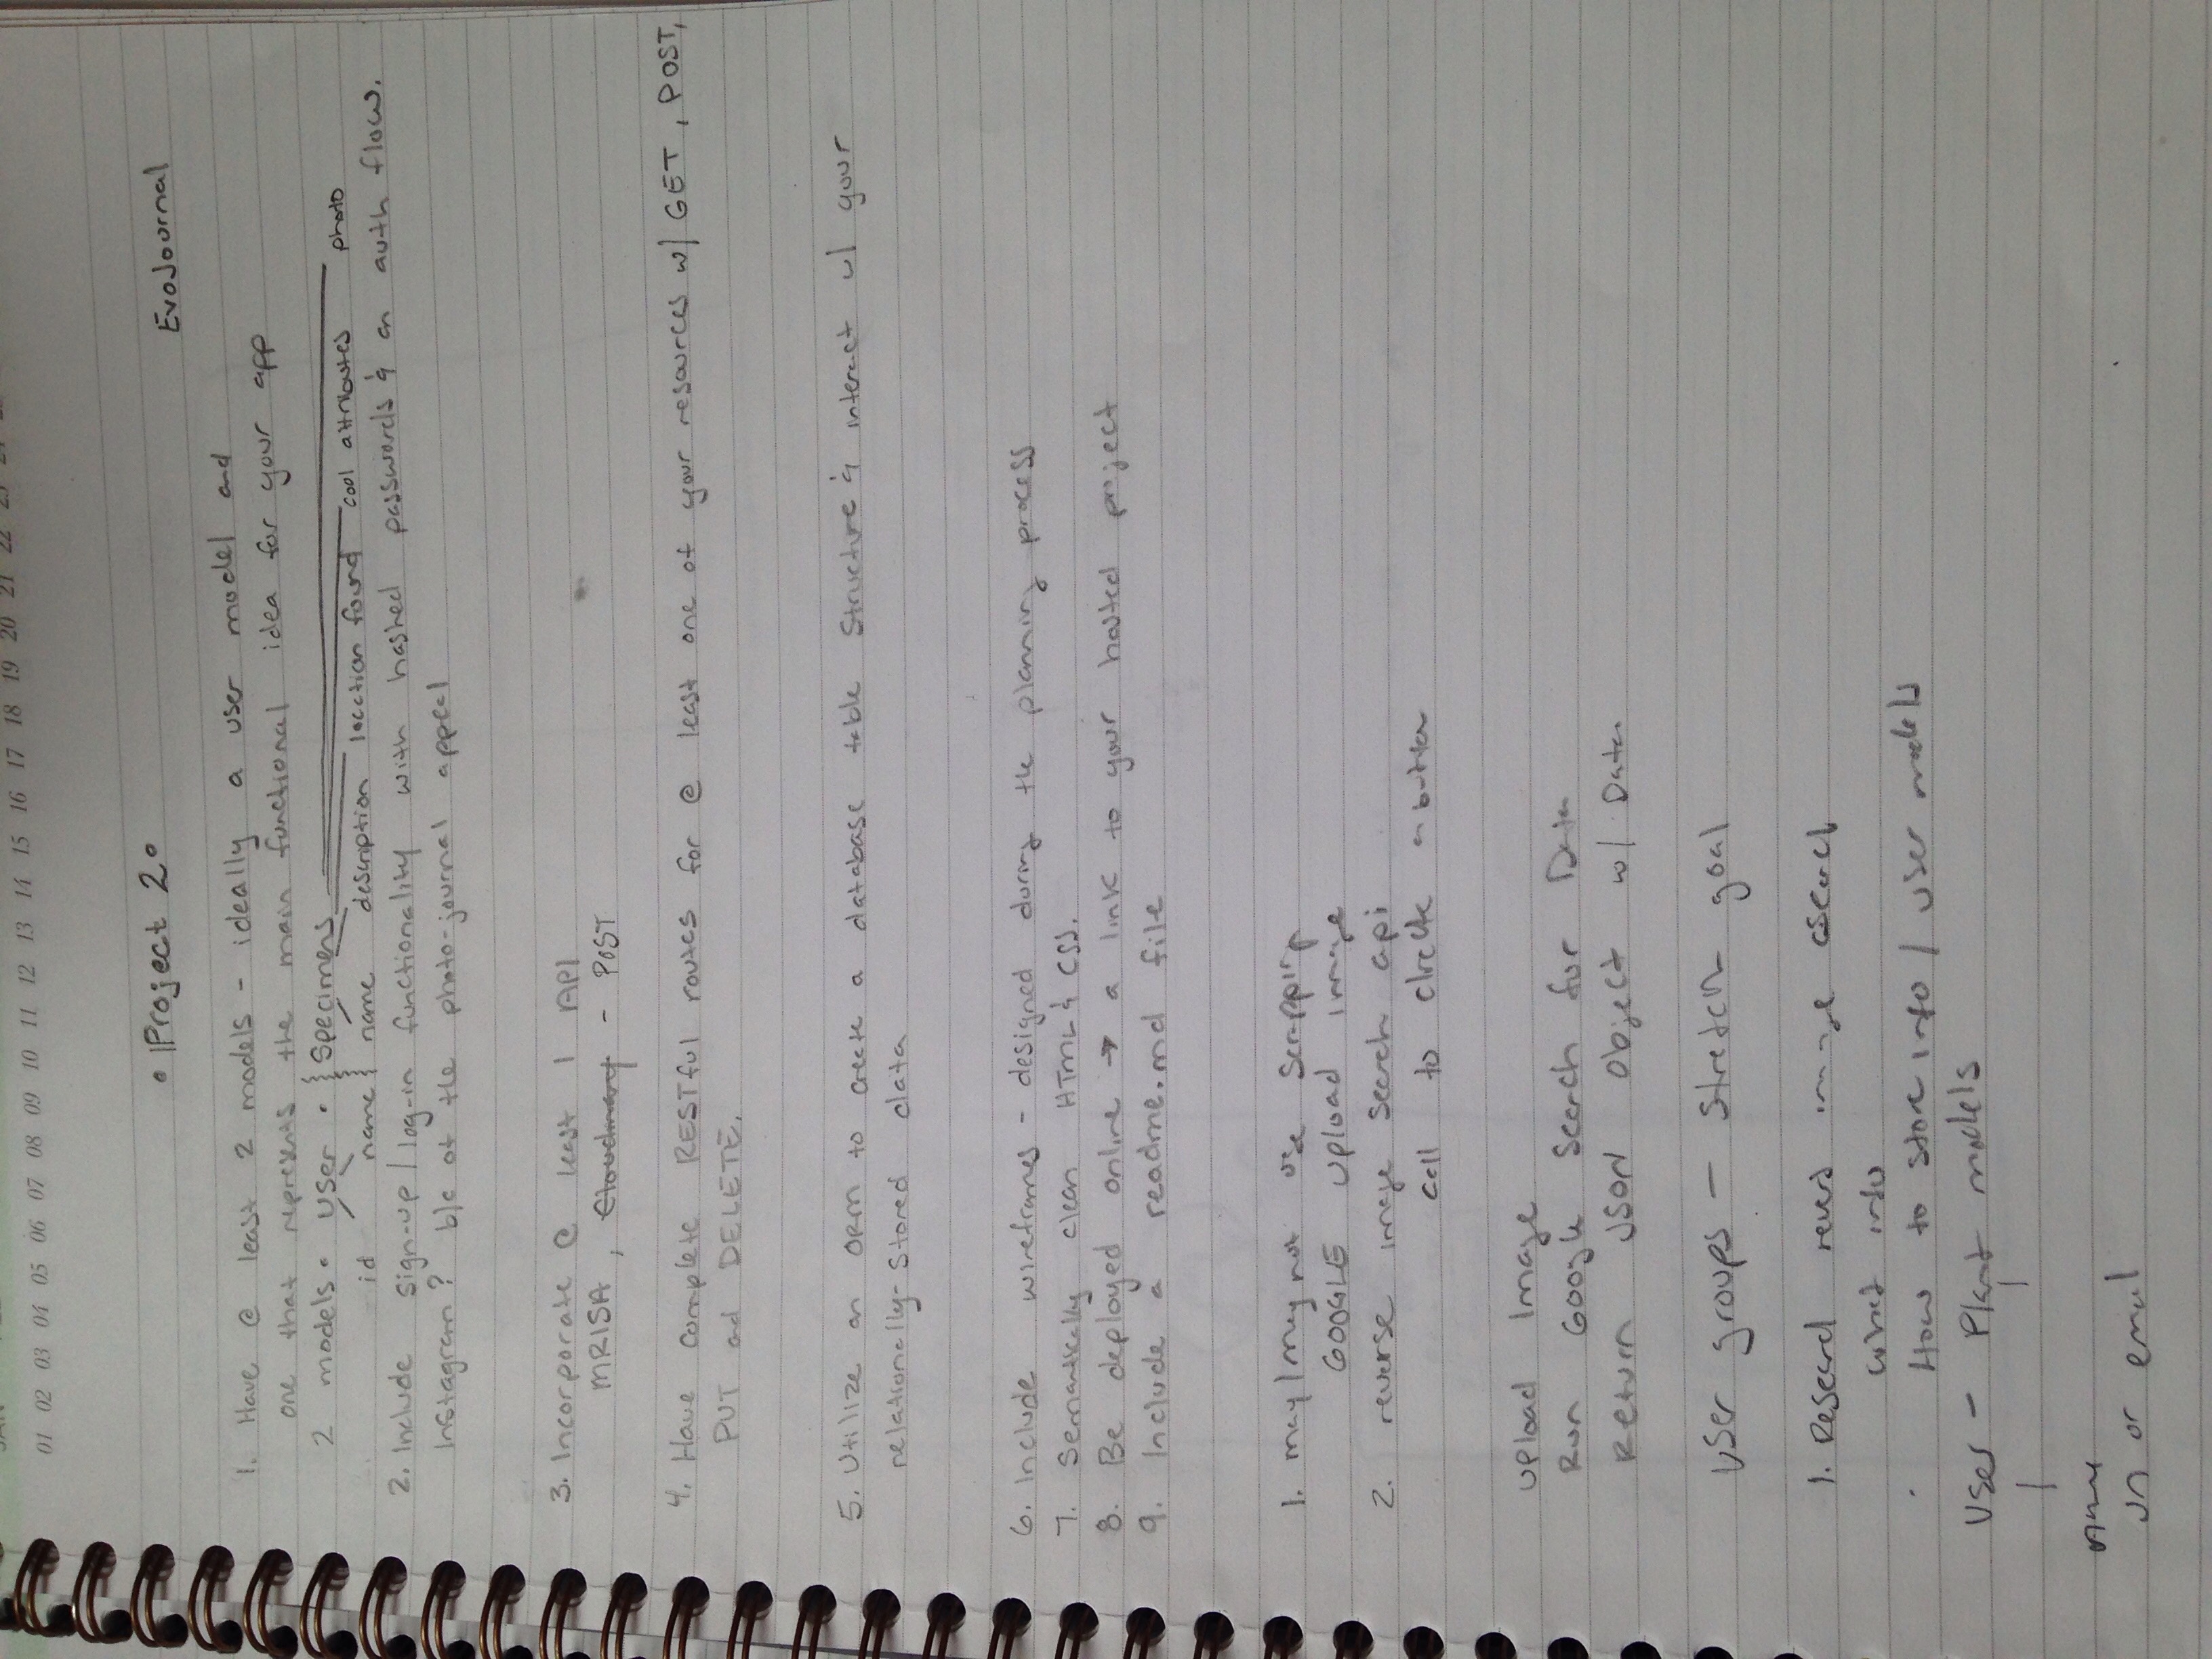 JAN
01 02 03 04 05 06 07 08 09 10 11 12 13 14 15 16 17 18 19 20 21 22 23
• Project 2 •
EvoJournal
1. Have @ least 2 models - ideally a user model and
one that represents the main functional idea for your app
2 models • User • Specimens
id name name description location found cool attributes photo
2. Include sign-up / log-in functionality with hashed passwords & an auth flow.
Instagram? b/c of the photo-journal appeal
3. Incorporate @ least 1 API
MRISA, Cloudinary - POST
4. Have complete RESTful routes for @ least one of your resources w/ GET, POST,
PUT and DELETE.
5. Utilize an ORM to create a database table structure & interact w/ your
relationally-stored data
6. Include wireframes - designed during the planning process
7. Semantically clean HTML & CSS.
8. Be deployed online → a link to your hosted project
9. Include a readme.md file
1. may/may not use scrapping
GOOGLE upload image
2. reverse image search api
call to create a button
Upload Image
Run Google Search for Data
Return JSON Object w/ Data
User groups - stretch goal
1. Research image search
what info
How to store info / user models
User - Plant models
name
un or email